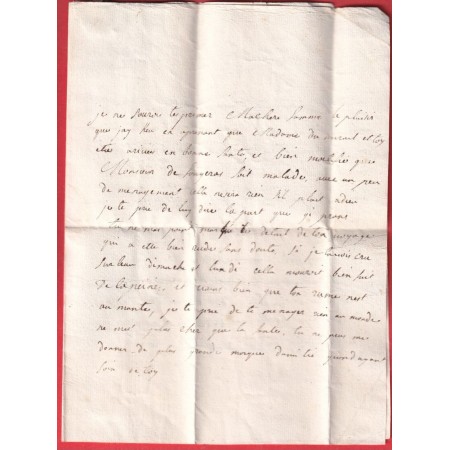 je ne saurois t'exprimer Ma chere femme le plaisir
que jay heu en aprenant que Madame du et toy
etes arrivés en bonne santé, et bien que
Monsieur de soit malade, avec un peu
de menagement cella nesera rien s'il plait a dieu
je te prie de luy dire la part que j'y prens
tu ne mas point le detail de ton voyage
qui a ete bien rude sans doute, si je lavois cru
cella mauroit bien fait
de la peine, et crains bien que ton rume nest
augmenté, je te prie de te menager rien au monde
ne mest plus cher que ta santé, tu ne peux me
donner de plus grande marque damitié quen ayant
soin de toy